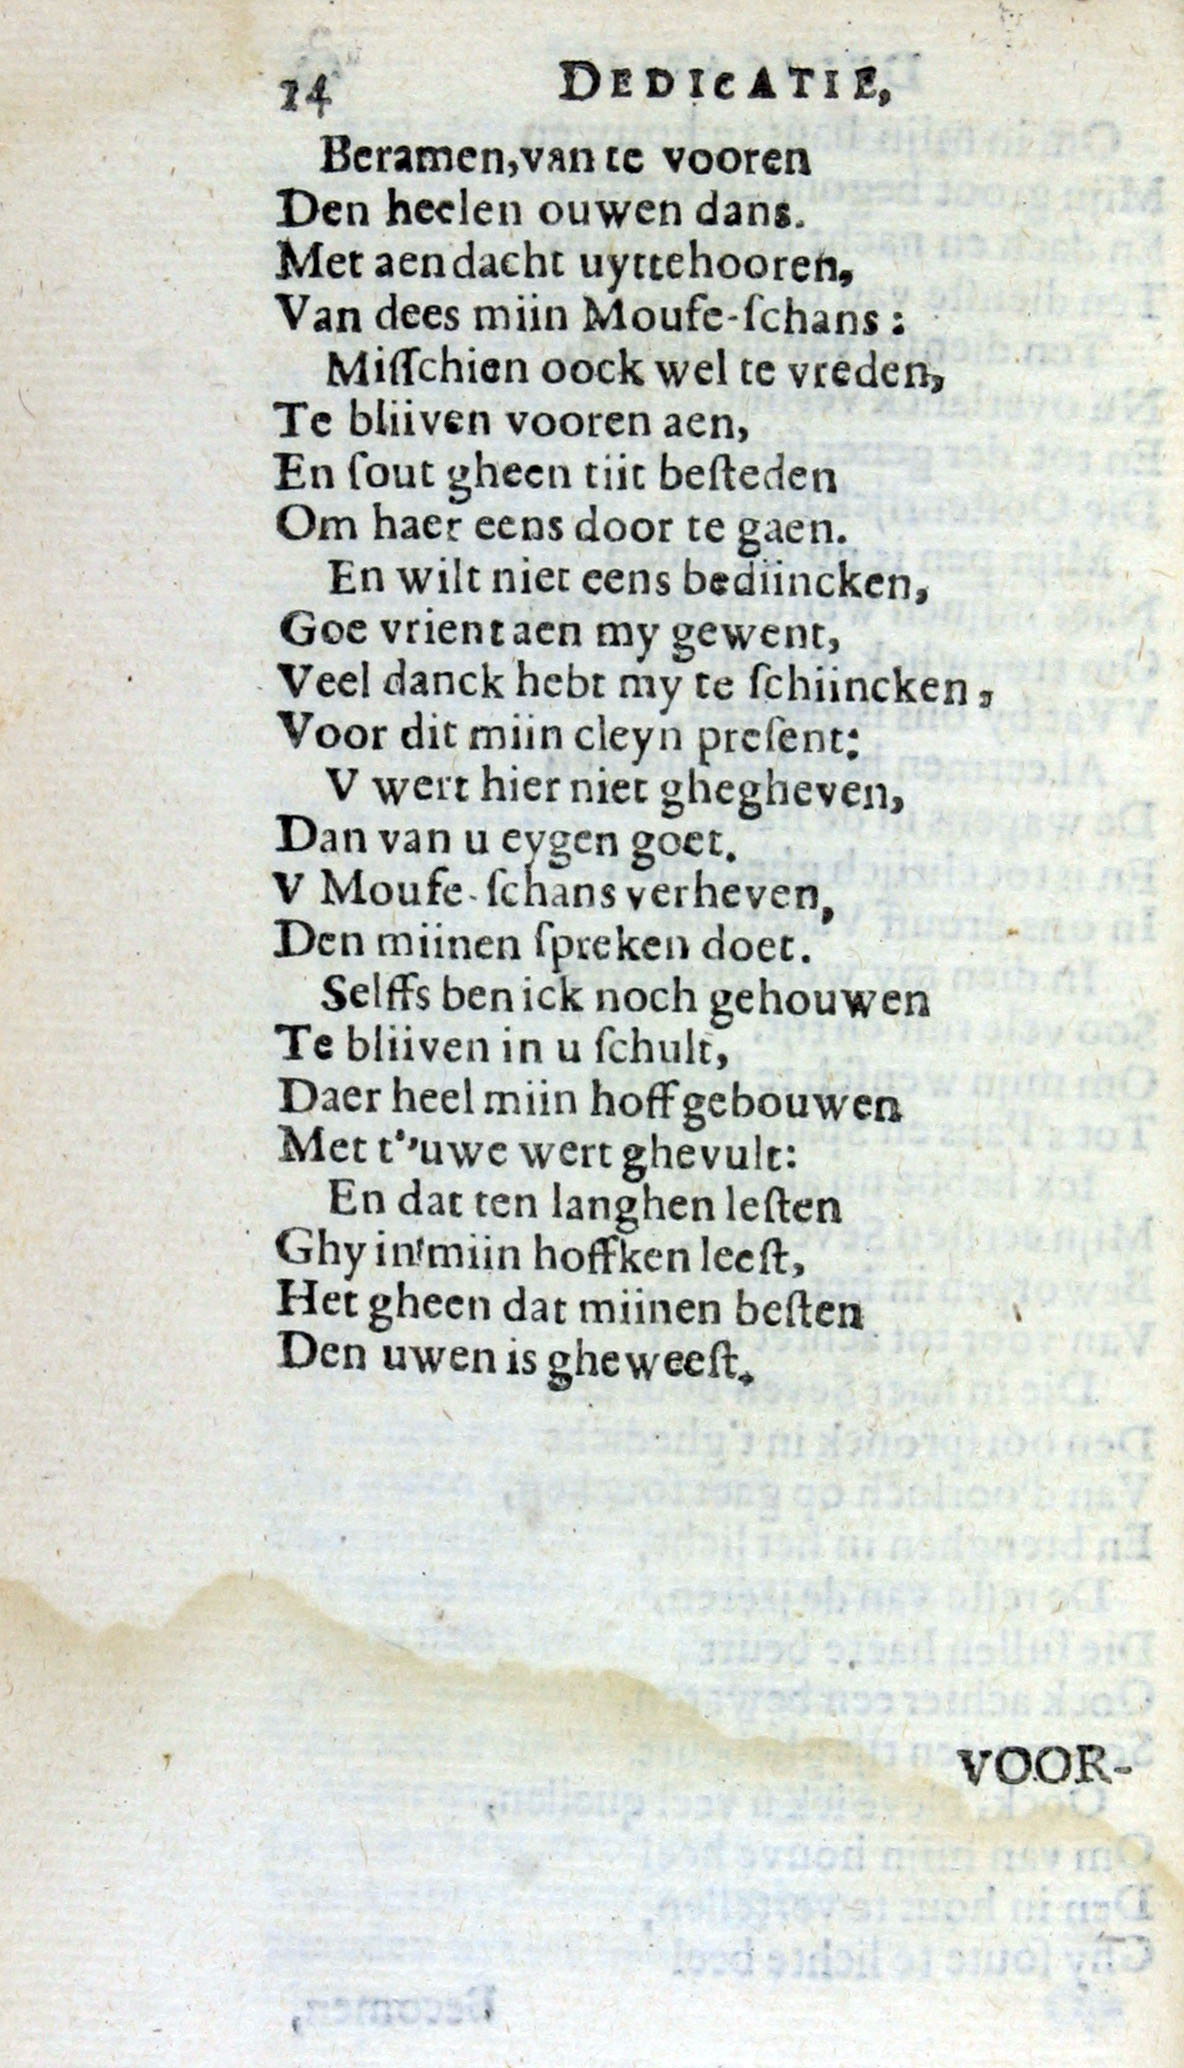 14 DEDICATIE,
Beramen, van te vooren
Den heelen ouwen dans.
Met aendacht uyttehooren,
Van dees miin Moufe-ſchans:
Miſſchien oock wel te vreden,
Te bliiven vooren aen,
En ſout gheen tiit beſteden
Om haer eens door te gaen.
En wilt niet eens bediincken,
Goe vrient aen my gewent,
Veel danck hebt my te ſchiincken,
Voor dit miin cleyn preſent:
V wert hier niet ghegheven,
Dan van u eygen goet.
V Moufe-ſchans verheven,
Den miinen ſpreken doet.
Selffs ben ick noch gehouwen
Te bliiven in u ſchult,
Daer heel miin hoff gebouwen
Met t'’uwe wert ghevult:
En dat ten langhen leſten
Ghy in miin hoffken leeſt,
Het gheen dat miinen beſten
Den uwen is gheweeſt.
VOOR-